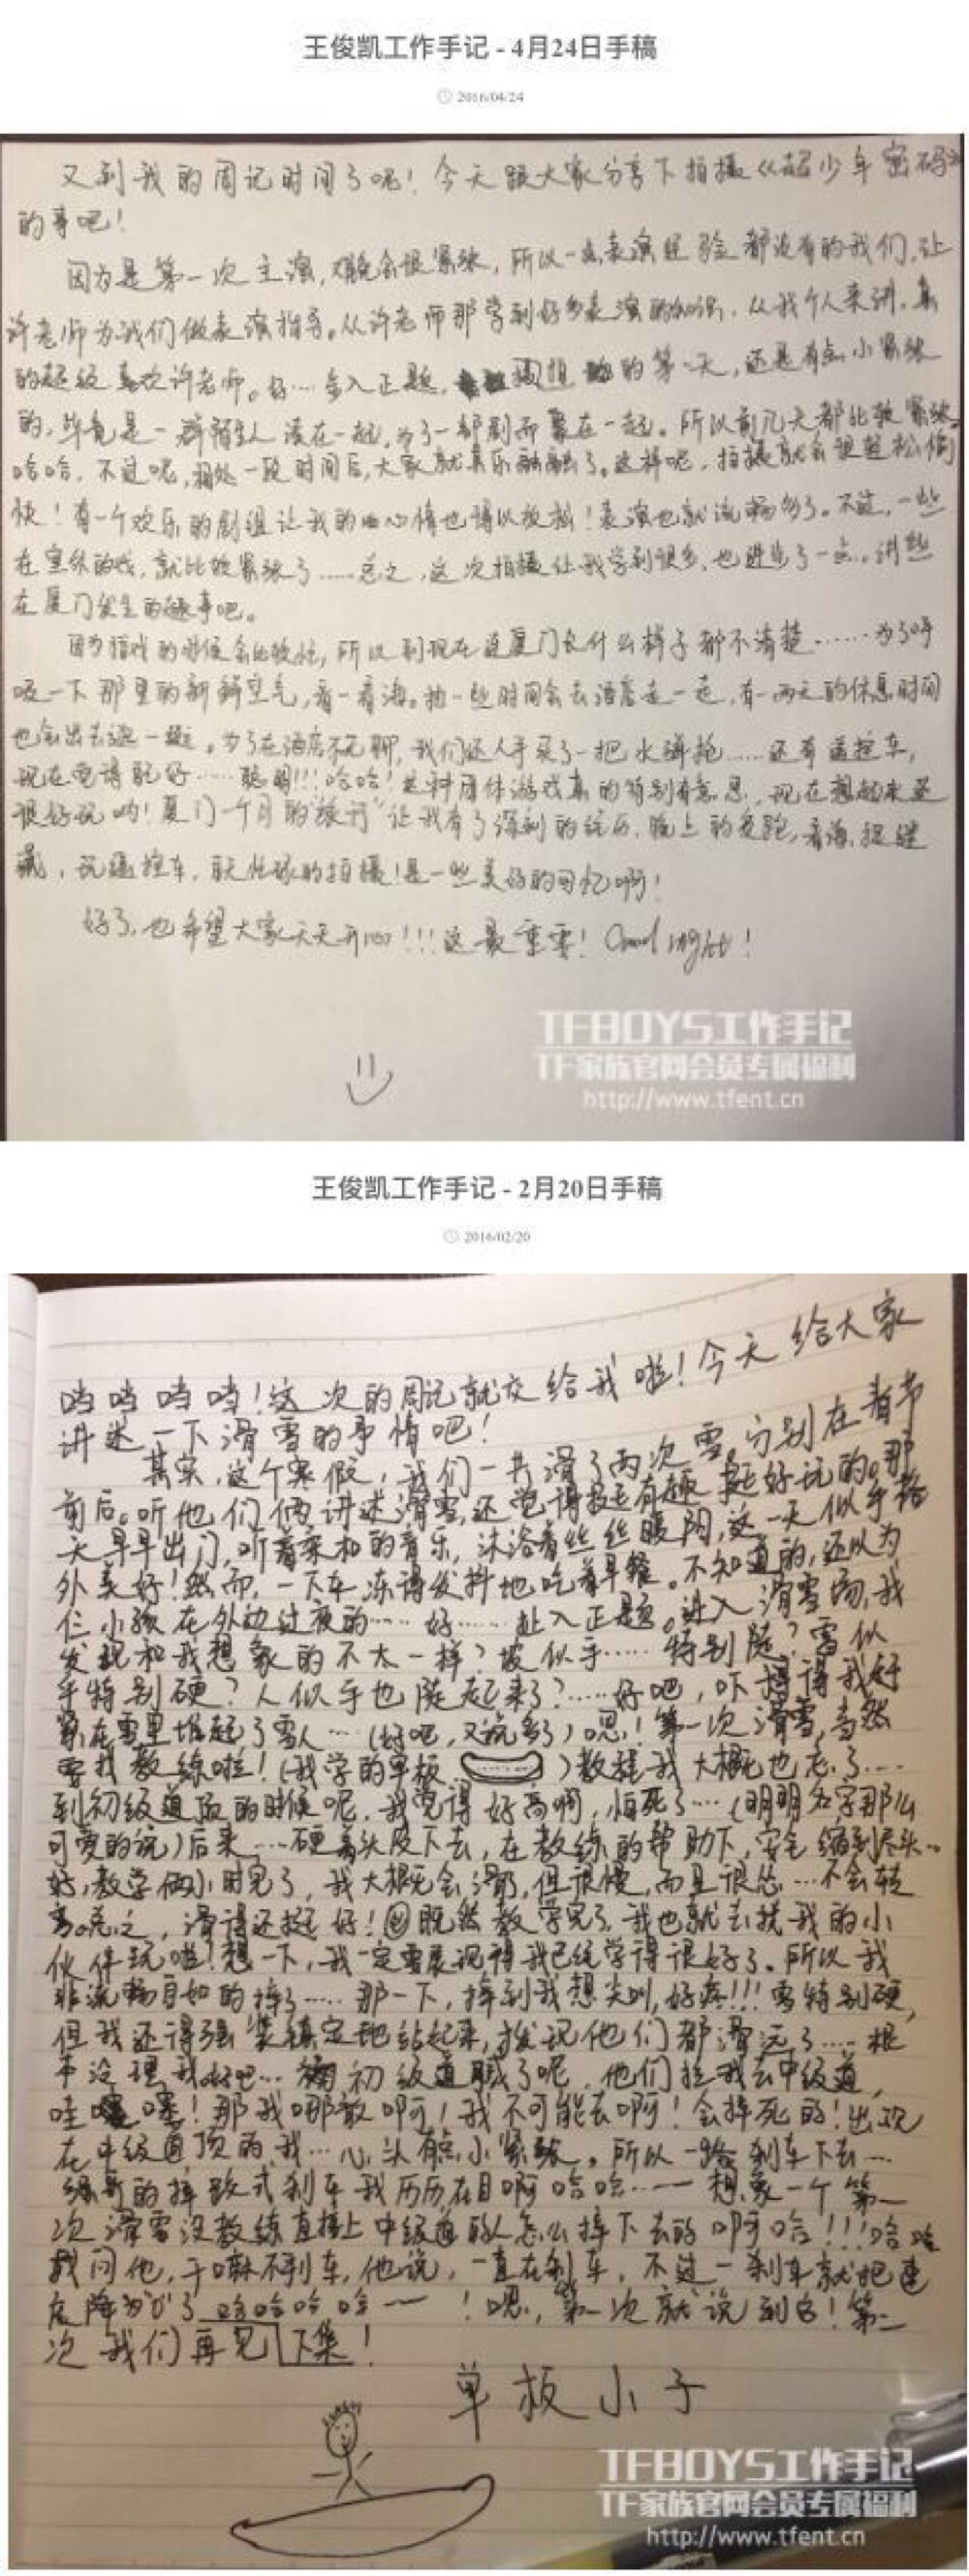 王俊凯工作手记 - 4月24日手稿
2016/04/24
又到我的周记时间了呢！今天跟大家分享下拍摄《超少年密码》
的事吧！
因为是第一次主演，难免会很紧张，所以一点表演经验都没有的我们，让
许老师为我们做表演指导。从许老师那学到好多表演的知识，从我个人来讲，真
的超级喜欢许老师。好……进入正题，的第一天，还是有点小紧张
的，毕竟是一群陌生人凑在一起，为了一部剧而聚在一起。所以前几天都比较紧张，
哈哈，不过呢，相处一段时间后，大家就其乐融融了。这样呢，拍摄就会很轻松愉
快！有一个欢乐的剧组让我的心情也得以放松！表演也就流畅多了。不过，一些
在室外的戏，就比较紧张了……总之，这次拍摄让我学到很多，也进步了一点。讲些
在厦门发生的趣事吧。
因为拍戏的时候会比较忙，所以到现在连厦门长什么样子都不清楚……为了呼
吸一下那里的新鲜空气，看一看海。抽一些时间会去酒店走一走，有一两天的休息时间
也会出去逛一逛。为了在酒店不无聊，我们还人手买了一把水弹枪……还有遥控车，
现在觉得配好……聪明！！！哈哈！这种团体游戏真的特别有意思，现在想起来还
很好玩哟！厦门一个月的“旅行”让我有了深刻的经历，晚上的夜跑，看海，捉迷
藏，玩遥控车，的拍摄！是一些美好的回忆啊！
好了，也希望大家天天开心！！！这最重要！Good night！
TFBOYS工作手记
TF家族官网会员专属福利
http://www.tfent.cn
王俊凯工作手记 - 2月20日手稿
2016/02/20
当当当当！这次的周记就交给我啦！今天给大家
讲述一下滑雪的事情吧！
其实，这个寒假，我们一共滑了两次雪，分别在春节
前后。听他们俩讲述滑雪，还觉得挺有趣，挺好玩的。那
天早早出门，听着柔和的音乐，沐浴着丝丝暖阳，这一天似乎格
外美好！然而，一下车冻得发抖地吃着早餐。不知道的，还以为
仨小孩在外边过夜的……好……进入正题。进入滑雪场，我
发现和我想象的不太一样？坡似乎……特别陡？雪似
乎特别硬？人似乎也陡起来了？……好吧，吓得我好
像在雪里堆起了雪人…（好吧，又说多了）嗯！第一次滑雪，当然
要找教练啦！（我学的单板）教程我大概也忘了……
到初级道顶的时候呢，我觉得好高啊，怕死了…（明明名字那么
可爱的说）后来……硬着头皮下去，在教练的帮助下，安全缩到尽头…
好，教学俩小时完了，我大概是会滑了，但很慢，而且很怂…不会转
弯。总之，滑得还挺好！既然教学完了，我也就去找我的小
伙伴玩啦！想一下，我一定要表现得我已经学得很好了。所以我
非流畅自如的摔了……那一下，摔到我想尖叫，好疼！！！雪特别硬，
但我还得强装镇定地站起来，发现他们都滑远了……根
本没理我。好吧…初级道腻了呢，他们拉我去中级道，
哇噻！那我哪敢啊！我不可能去啊！会摔死的！出现
在中级道顶的我…心头有点小紧张。所以一路刹车下去…
的摔跤式刹车我历历在目啊哈哈……想象一个第一
次滑雪没教练直接上中级道的人怎么摔下去的啊哈！！！哈哈
我问他，干嘛不刹车，他说，一直在刹车，不过一刹车就把速
度降为“0”了哈哈哈哈——！嗯，第一次就说到这！第二
次我们再见下集！
单板小子
TFBOYS工作手记
TF家族官网会员专属福利
http://www.tfent.cn